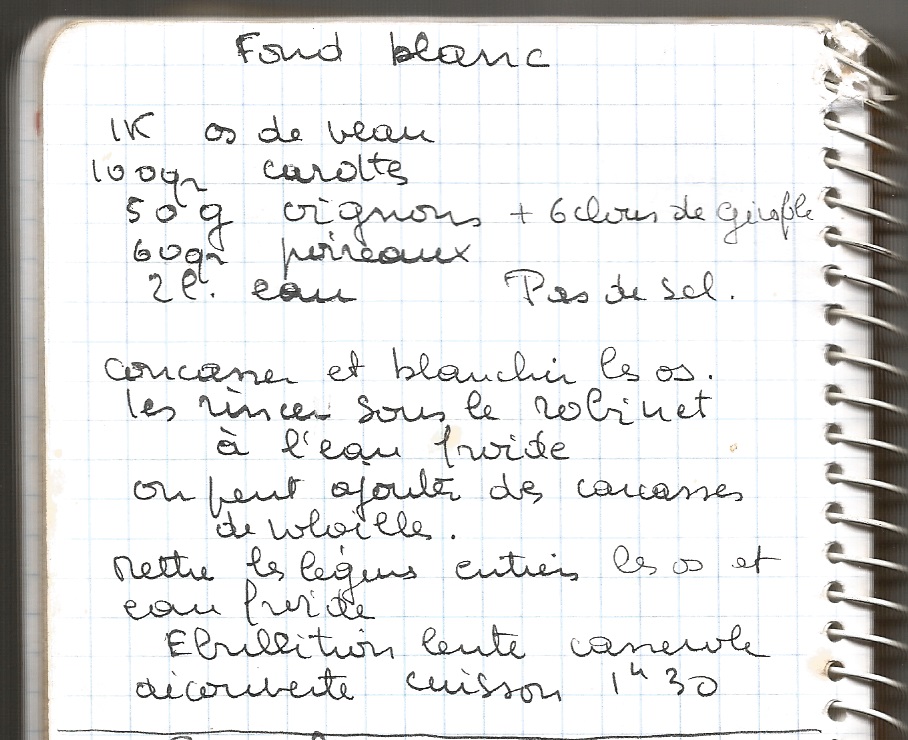 Fond blanc
1K os de veau
100gr carottes
50g oignons + 6 clous de girofle
60gr poireaux
2l. eau Pas de sel.
concasser et blanchir les os.
les rincer sous le robinet
à l'eau froide
on peut ajouter des carcasses
de volaille.
Mettre les légums entiers les os et
eau froide
Ebullition lente casserole
découverte cuisson 1h30